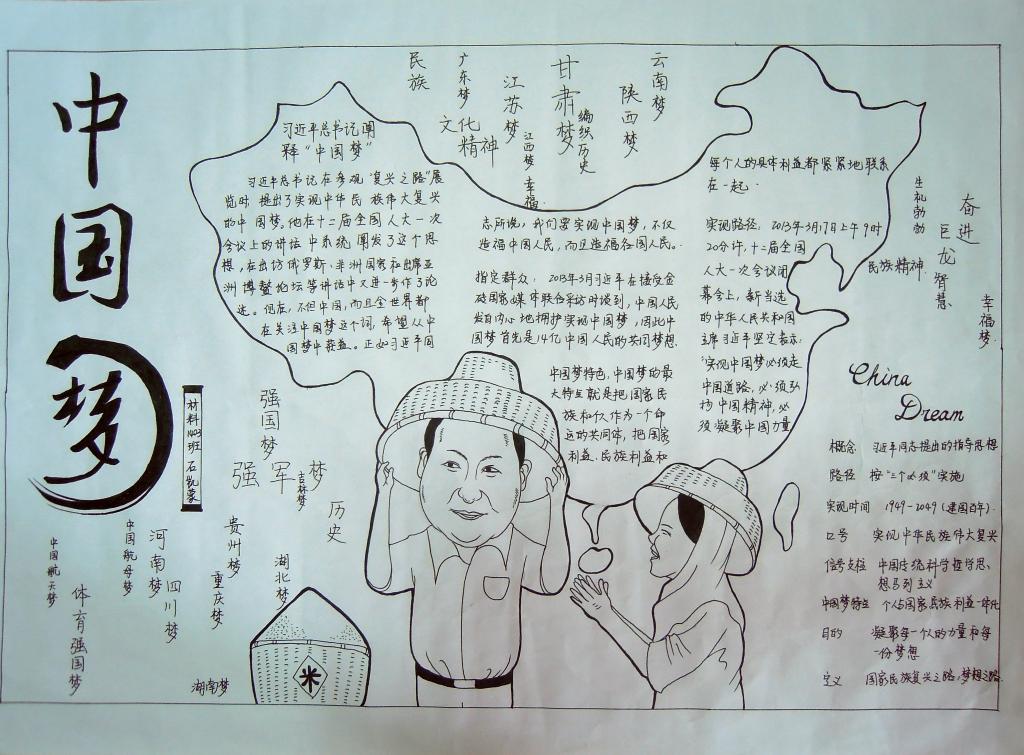 中国梦
材料1403班
民族
广东梦
文化
精神
江苏梦
江西梦
幸福
甘肃梦
编织历史
陕西梦
云南梦
习近平总书记阐
释“中国梦”
习近平总书记在参观“复兴之路”展
览时提出了实现中华民族伟大复兴
的中国梦。他在十二届全国人大一次
会议上的讲话中系统阐发了这个思
想，在出访俄罗斯、非洲国家和出席亚
洲博鳌论坛等讲话中又进一步作了论
述。现在，不但中国，而且全世界都
在关注中国梦这个词，希望从中
国梦中获益。正如习近平同
志所说，我们要实现中国梦，不仅
造福中国人民，而且造福各国人民。
指定群众：2013年3月习近平在接受金
砖国家媒体联合采访时谈到，中国人民
发自内心地拥护实现中国梦，因此中
国梦首先是14亿中国人民的共同梦想
中国梦特色，中国梦的最
大特点就是把国家民
族和个人作为一个命
运的共同体，把国家
利益、民族利益和
每个人的具体利益都紧紧地联系
在一起。
实现路径：2013年3月17日上午9时
20分许，十二届全国
人大一次会议闭
幕会上，新当选
的中华人民共和国
主席习近平坚定表示：
“实现中国梦必须走
中国道路，必须弘
扬中国精神，必
须凝聚中国力量
生机勃勃
奋进
巨龙
智慧
民族精神
幸福梦
China
Dream
概念 习近平同志提出的指导思想
路径 按“三个必须”实施
实现时间 1949-2049（建国百年）.
口号 实现中华民族伟大复兴
信号支柱 中国传统科学哲学思、
想马列主义
中国梦特点 个人与国家民族利益一体化
目的 凝聚每一个人的力量和每
一份梦想
定义 国家民族复兴之路，梦想之路
强国梦
强军梦
吉林梦
历史
贵州梦
重庆梦
湖北梦
中国航母梦
河南梦
四川梦
中国航天梦
体育强国梦
湖南梦
米